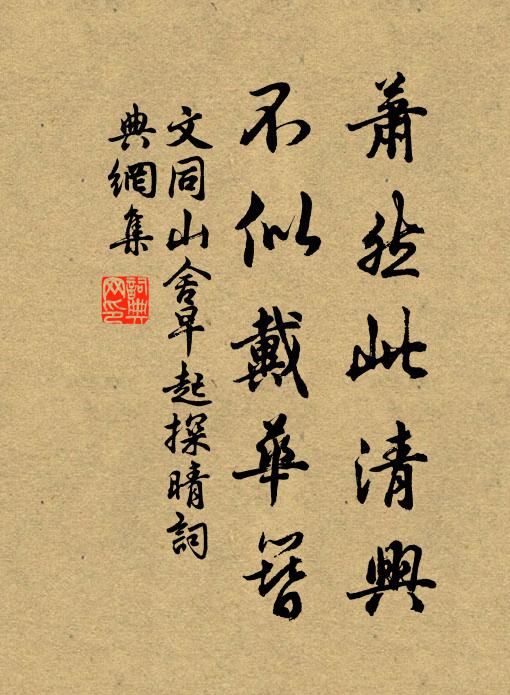 蕭然此清興
不似戴華簪
文同山舍早起探晴詞
典網集
詞典網印